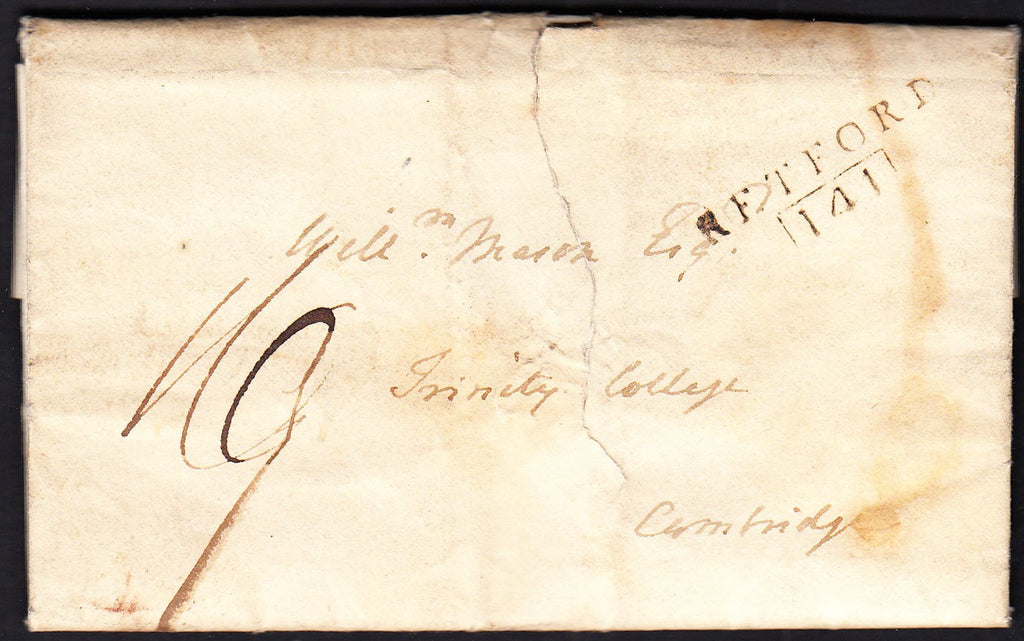 RETFORD
141
Will.m Mason Esq.
Trinity College
Cambridge